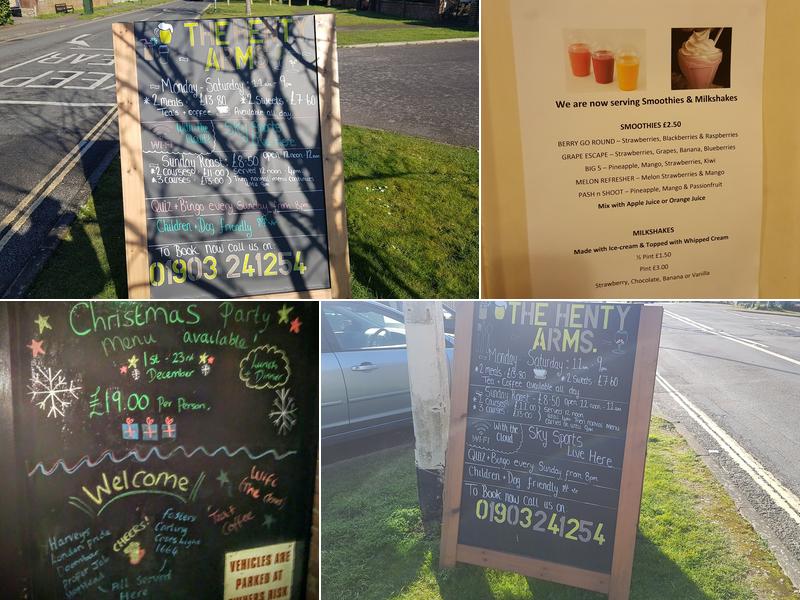 THE HENTY
ARMS.
Monday - Saturday : 11am 9pm
*2 meals £13.80 *2 Sweets £7.60
Tea's + coffee Available all day
WI-FI With the Cloud
Sky Sports
Live Here
Sunday Roast - £8.50 open 12 noon - 12am
*2 courses £11.00 Served 12 noon - 4pm
*3 courses - £15.00 Then normal menu continues
until 9pm
Quiz + Bingo every Sunday from 8pm
Children + Dog friendly
To Book now call us on
01903 241254
We are now serving Smoothies & Milkshakes
SMOOTHIES £2.50
BERRY GO ROUND – Strawberries, Blackberries & Raspberries
GRAPE ESCAPE – Strawberries, Grapes, Banana, Blueberries
BIG 5 – Pineapple, Mango, Strawberries, Kiwi
MELON REFRESHER – Melon Strawberries & Mango
PASH n SHOOT – Pineapple, Mango & Passionfruit
Mix with Apple Juice or Orange Juice
MILKSHAKES
Made with Ice-cream & Topped with Whipped Cream
½ Pint £1.50
Pint £3.00
Strawberry, Chocolate, Banana or Vanilla
Christmas Party
menu available!
1st - 23rd
December
Lunch +
Dinner
£19.00 Per Person.
Welcome
Wifi
(The Cloud)
Tea +
Coffee
CHEERS!
Harveys
London Pride
Doombar
Proper Job
Fosters
Carling
Cronenbourg
1664
All Served
Here
VEHICLES ARE
PARKED AT
OWNERS RISK
THE HENTY
ARMS.
Monday - Saturday : 11am
*2 meals £13.80 *2 Sweets £7.60
Tea + Coffee available all day
Sunday Roast - £8.50 open 12 noon - 12am
*2 courses £11.00 Served 12 noon
*3 courses £15.00 4pm Then normal menu
carries on until 9pm
WI-FI with the
Cloud
Sky Sports
Live Here
Quiz + Bingo every Sunday from 8pm
Children + Dog friendly
To Book now call us on
01903 241254